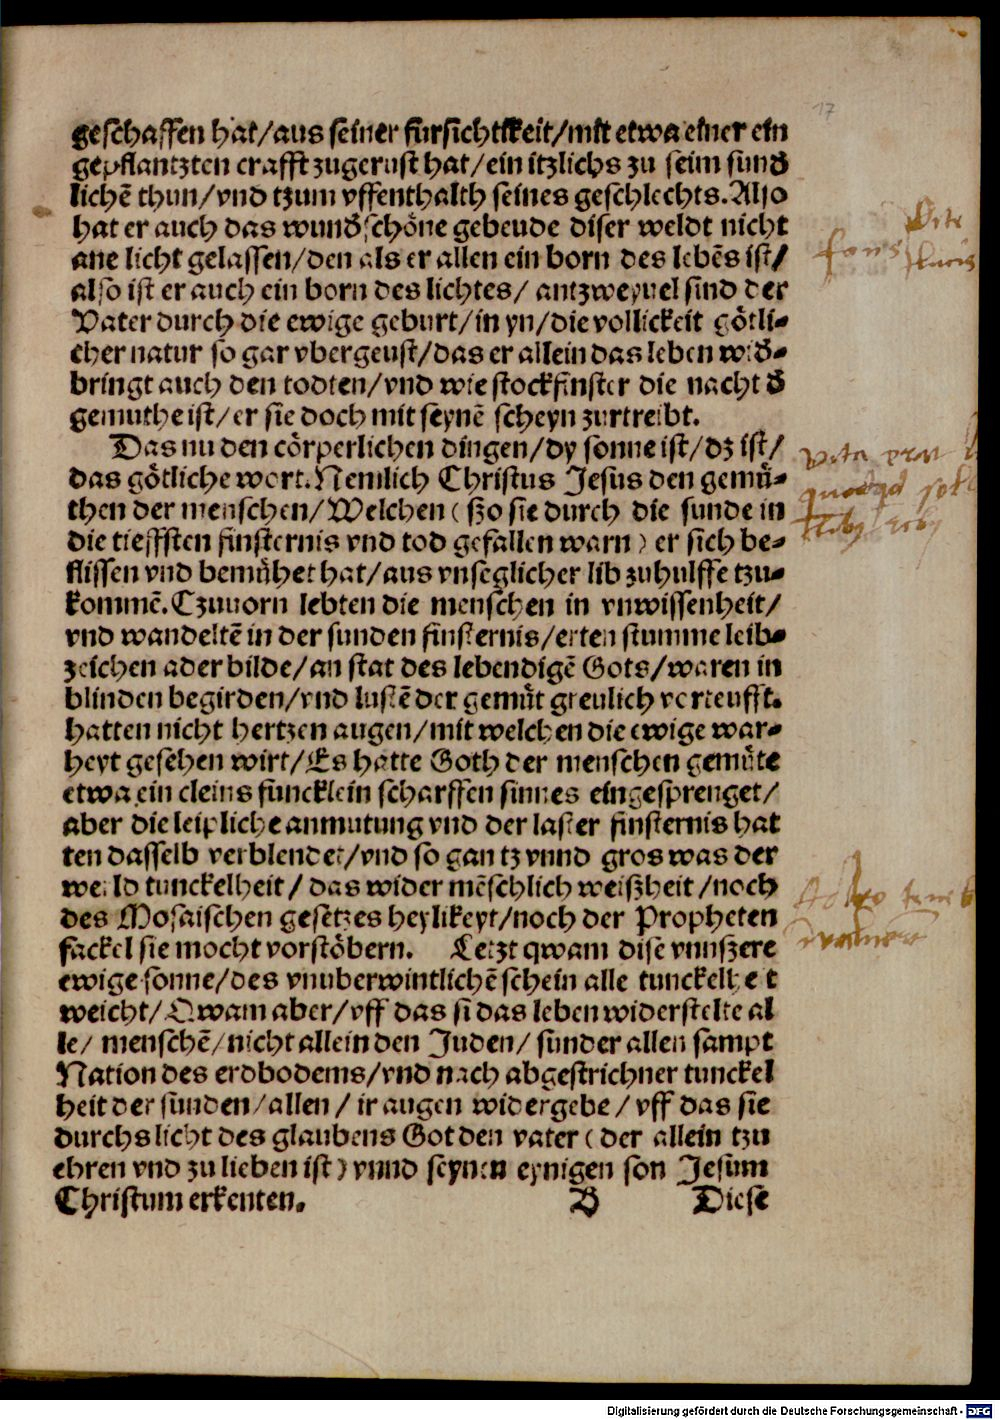 17
geschaffen hat/aus seiner fursichtikeit/mit etwa einer ein
gepflantzten crafft zugerust hat/ein itzlichs zu seim sund
lichē thun/vnd tzum vffenthalth seines geschlechts. Also
hat er auch das wundschöne gebeude diser weldt nicht
ane licht gelassen/den als er allen ein born des lebēs ist/
also ist er auch ein born des lichtes/ antzweyuel sind der
Vater durch die ewige geburt/in yn/die vollickeit götli-
cher natur so gar vbergeust/das er allein das leben wid-
bringt auch den todten/vnd wie stockfinster die nacht d
gemuthe ist/er sie doch mit seynē scheyn zurtreibt.
Das nu den cörperlichen dingen/dy sonne ist/dz ist/
das götliche wort. Nemlich Christus Jesus den gemü-
then der menschen/Welchen (szo sie durch die sunde in
die tieffsten finsternis vnd tod gefallen warn) er sich be-
flissen vnd bemühet hat/aus vnseglicher lib zuhulffe tzu-
kommē. Czuuorn lebten die menschen in vnwissenheit/
vnd wandeltē in der sunden finsternis/erten stumme leib-
zeichen ader bilde/an stat des lebendigē Gots/waren in
blinden begirden/vnd lustē der gemüt greulich vorteufft.
hatten nicht hertzen augen/mit welchen die ewige war-
heyt gesehen wirt/Es hatte Goth der menschen gemüte
etwa ein cleins funcklein scharffen sinnes eingesprenget/
aber die leipliche anmutung vnd der laster finsternis hat
ten dasselb verblendet/vnd so gantz vnnd gros was der
werld tunckelheit/ das wider mēschlich weißheit/noch
des Mosaischen gesetzes heylikeyt/noch der Propheten
fackel sie mocht vorstöbern. Letzt qwam dise vnnszere
ewige sonne/des vnuberwintlichē schein alle tunckelheit
weicht/Qwam aber/vff das si das leben widerstelte al
le/ menschē/nicht allein den Juden/ sunder allen sampt
Nation des erdbodems/vnd nach abgestrichner tunckel
heit der sunden/allen/ ir augen widergebe/ vff das sie
durchs licht des glaubens Got den vater (der allein tzu
ehren vnd zu lieben ist) vnnd seynen eynigen son Jesum
Christum erkenten. B Diese
Digitalisierung gefördert durch die Deutsche Forschungsgemeinschaft - DFG